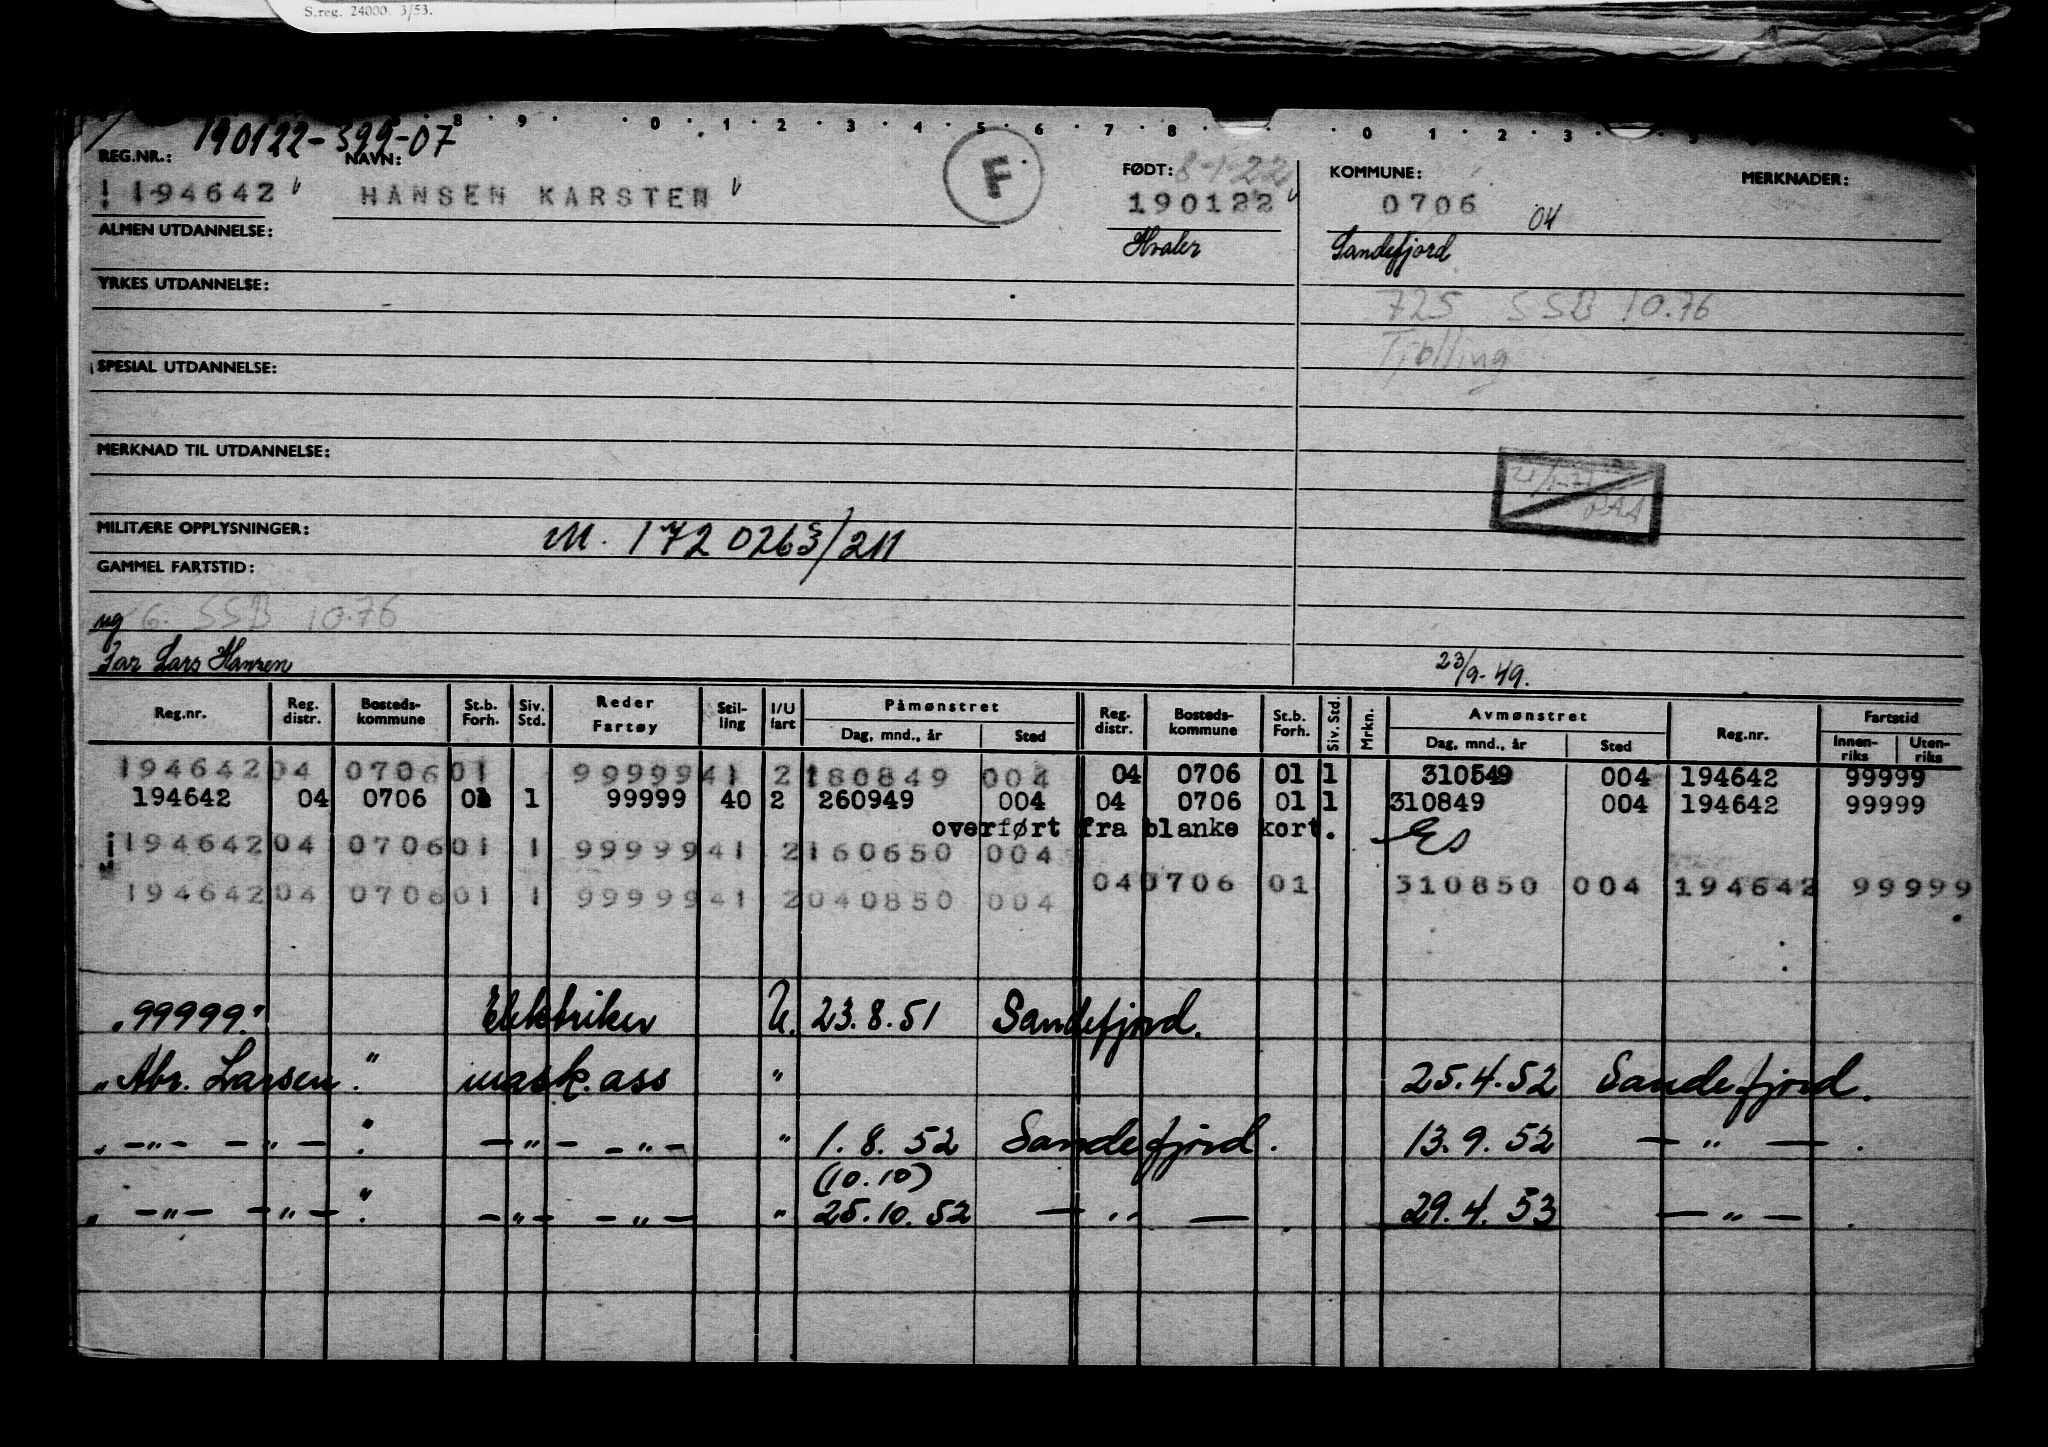 S.reg. 24000. 3/53.
8 9 0 1 2 3 4 5 6 7 8 0 1 2 3
190122-399-07
REG.NR.: NAVN: FØDT: 8-1-22 KOMMUNE: MERKNADER:
194642 HANSEN KARSTEN F 190122 0706 04
ALMEN UTDANNELSE: Hvaler Sandefjord
YRKES UTDANNELSE:
725 SSB 10.76
Tjølling
SPESIAL UTDANNELSE:
MERKNAD TIL UTDANNELSE:
MILITÆRE OPPLYSNINGER: M. 1720263/211
GAMMEL FARTSTID:
ug 6. SSB 10.76
Far Lars Hansen
23/9-49.
Reg.nr. Reg. distr. Bosteds-kommune St.b. Forh. Siv. Std. Reder Fartøy Stil-ling I/U fart Påmønstret Dag, mnd., år Sted Reg. distr. Bosteds-kommune St.b. Forh. Siv. Std. Mrkn. Avmønstret Dag, mnd., år Sted Reg.nr. Fartstid Innen-riks Uten-riks
194642 04 0706 01 99999 41 2 180849 004 04 0706 01 1 310549 004 194642 99999
194642 04 0706 01 1 99999 40 2 260949 004 04 0706 01 1 310849 004 194642 99999
overført fra blanke kort. Es
194642 04 0706 01 1 99999 41 2 160650 004
04 0706 01 310850 004 194642 99999
194642 04 0706 01 1 99999 41 2 040850 004
"99999." Elektriker U. 23.8.51 Sandefjord.
"Abr. Larsen." mask. ass " 25.4.52 Sandefjord.
" -"- -"- ". -"- -"- " 1.8.52 Sandefjord. 13.9.52 -"- .
(10.10)
" -"- -"- ". -"- -"- " 25.10.52 -"- . 29.4.53 -"- .